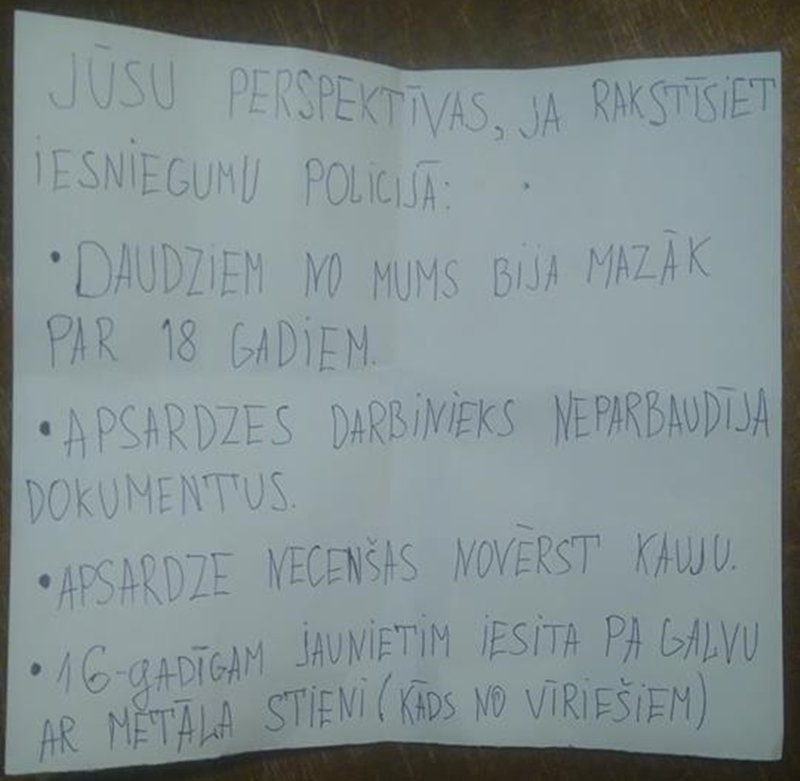 JŪSU PERSPEKTĪVAS, JA RAKSTĪSIET
IESNIEGUMU POLICIJĀ:
• DAUDZIEM NO MUMS BIJA MAZĀK
PAR 18 GADIEM.
• APSARDZES DARBINIEKS NEPARBAUDĪJA
DOKUMENTUS.
• APSARDZE NECENŠAS NOVĒRST KAUJU.
• 16-gADĪGAM JAUNIETIM IESITA PA GALVU
AR METĀLA STIENI (KĀDS NO VĪRIEŠIEM)